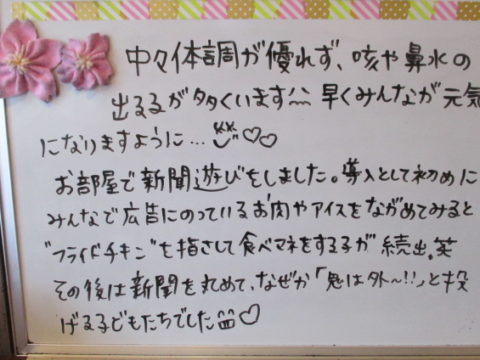 中々体調が優れず、咳や鼻水の
出るるが多くいます^^ 早くみんなが元気
になりますように…♡♡
お部屋で新聞遊びをしました。導入として初めに
みんなで広告にのっているお肉やアイスをながめてみると
"フライドチキン"を指さして食べマネをする子が続出。笑
その後は新聞を丸めて、なぜか「鬼は外〜!!」と投
げる子どもたちでした♡